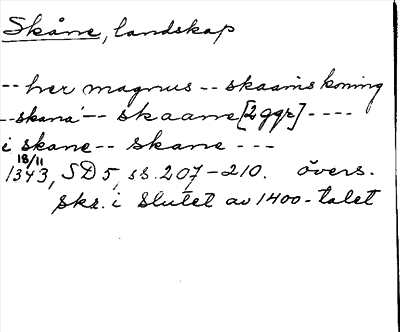 Skåne, landskap
-- her magnus -- skaanis koning
-- skana -- skaane [2 ggr] ----
i skane -- skane ---
18/11
1343, SD 5, ss. 207-210. övers.
skr. i slutet av 1400-talet